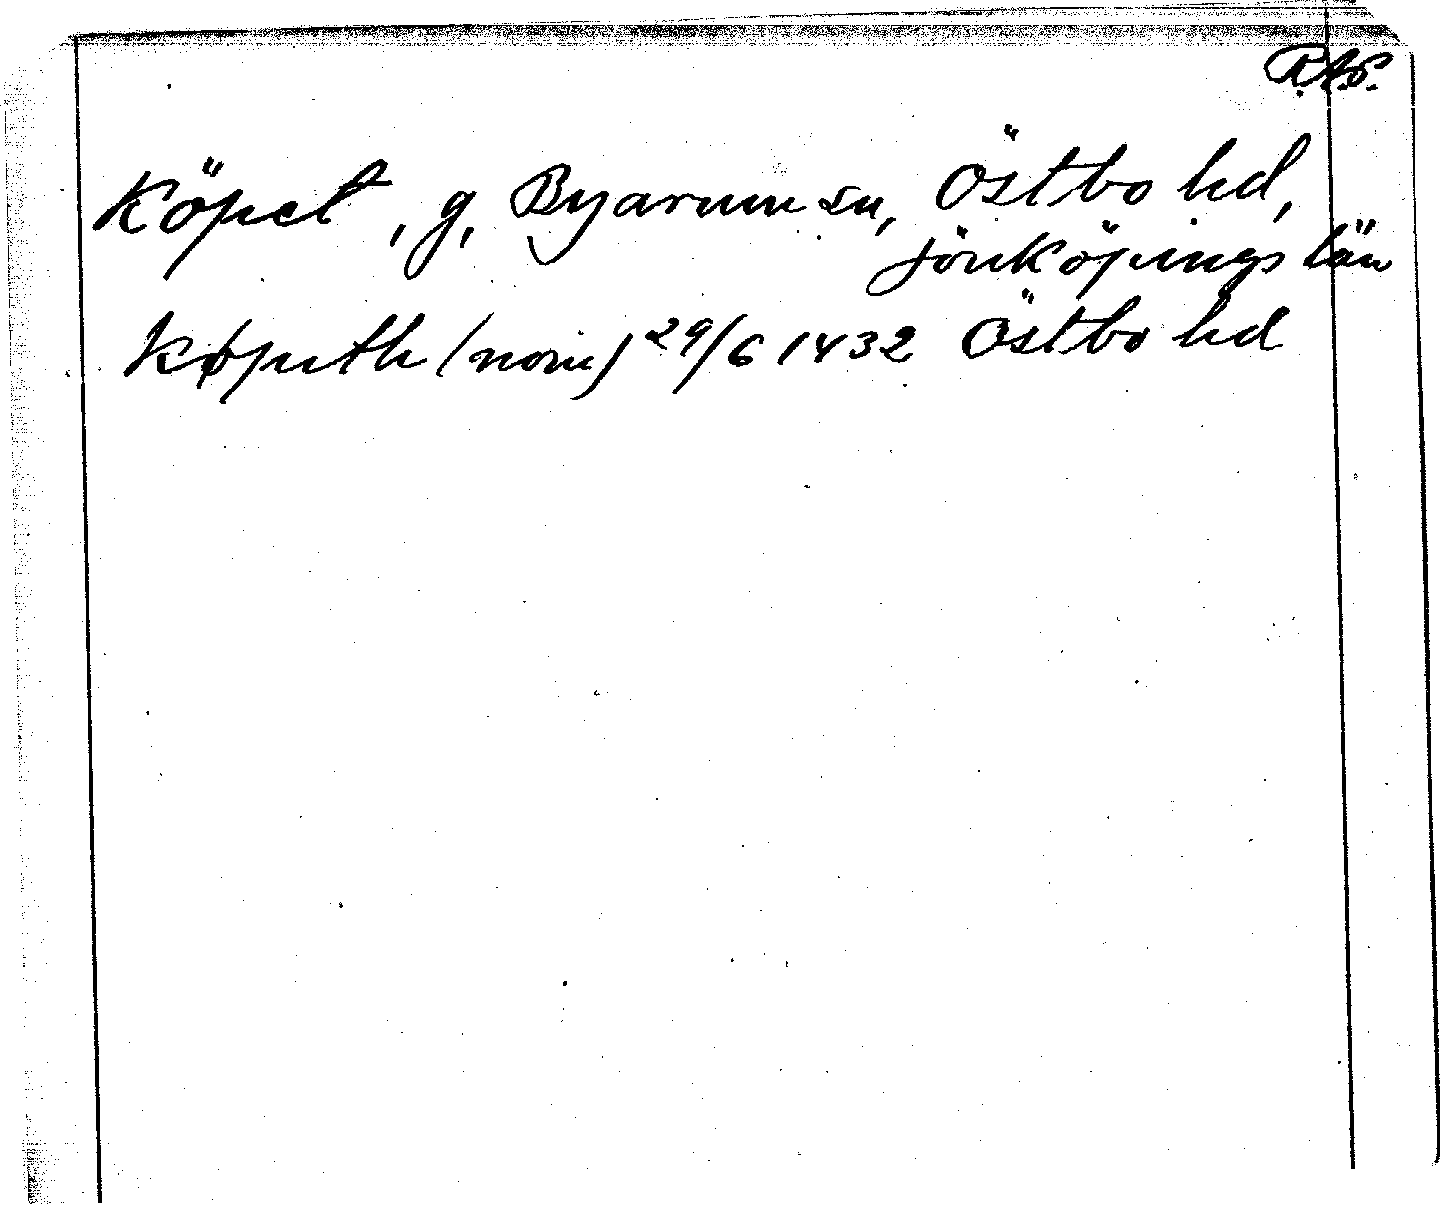 R.A.P.
Köpet, g, Byarum sn, Östbo hd,
Jönköpings län
Køpith (nom) 29/6 1432 Östbo hd